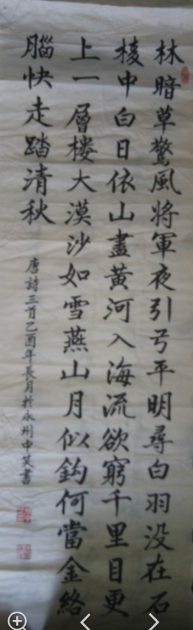 林暗草驚風將軍夜引弓平明尋白羽没在石
棱中白日依山盡黄河入海流欲窮千里目更
上一層樓大漠沙如雪燕山月似鈎何當金絡
腦快走踏清秋
唐詩三首己酉年長月於永州中英書